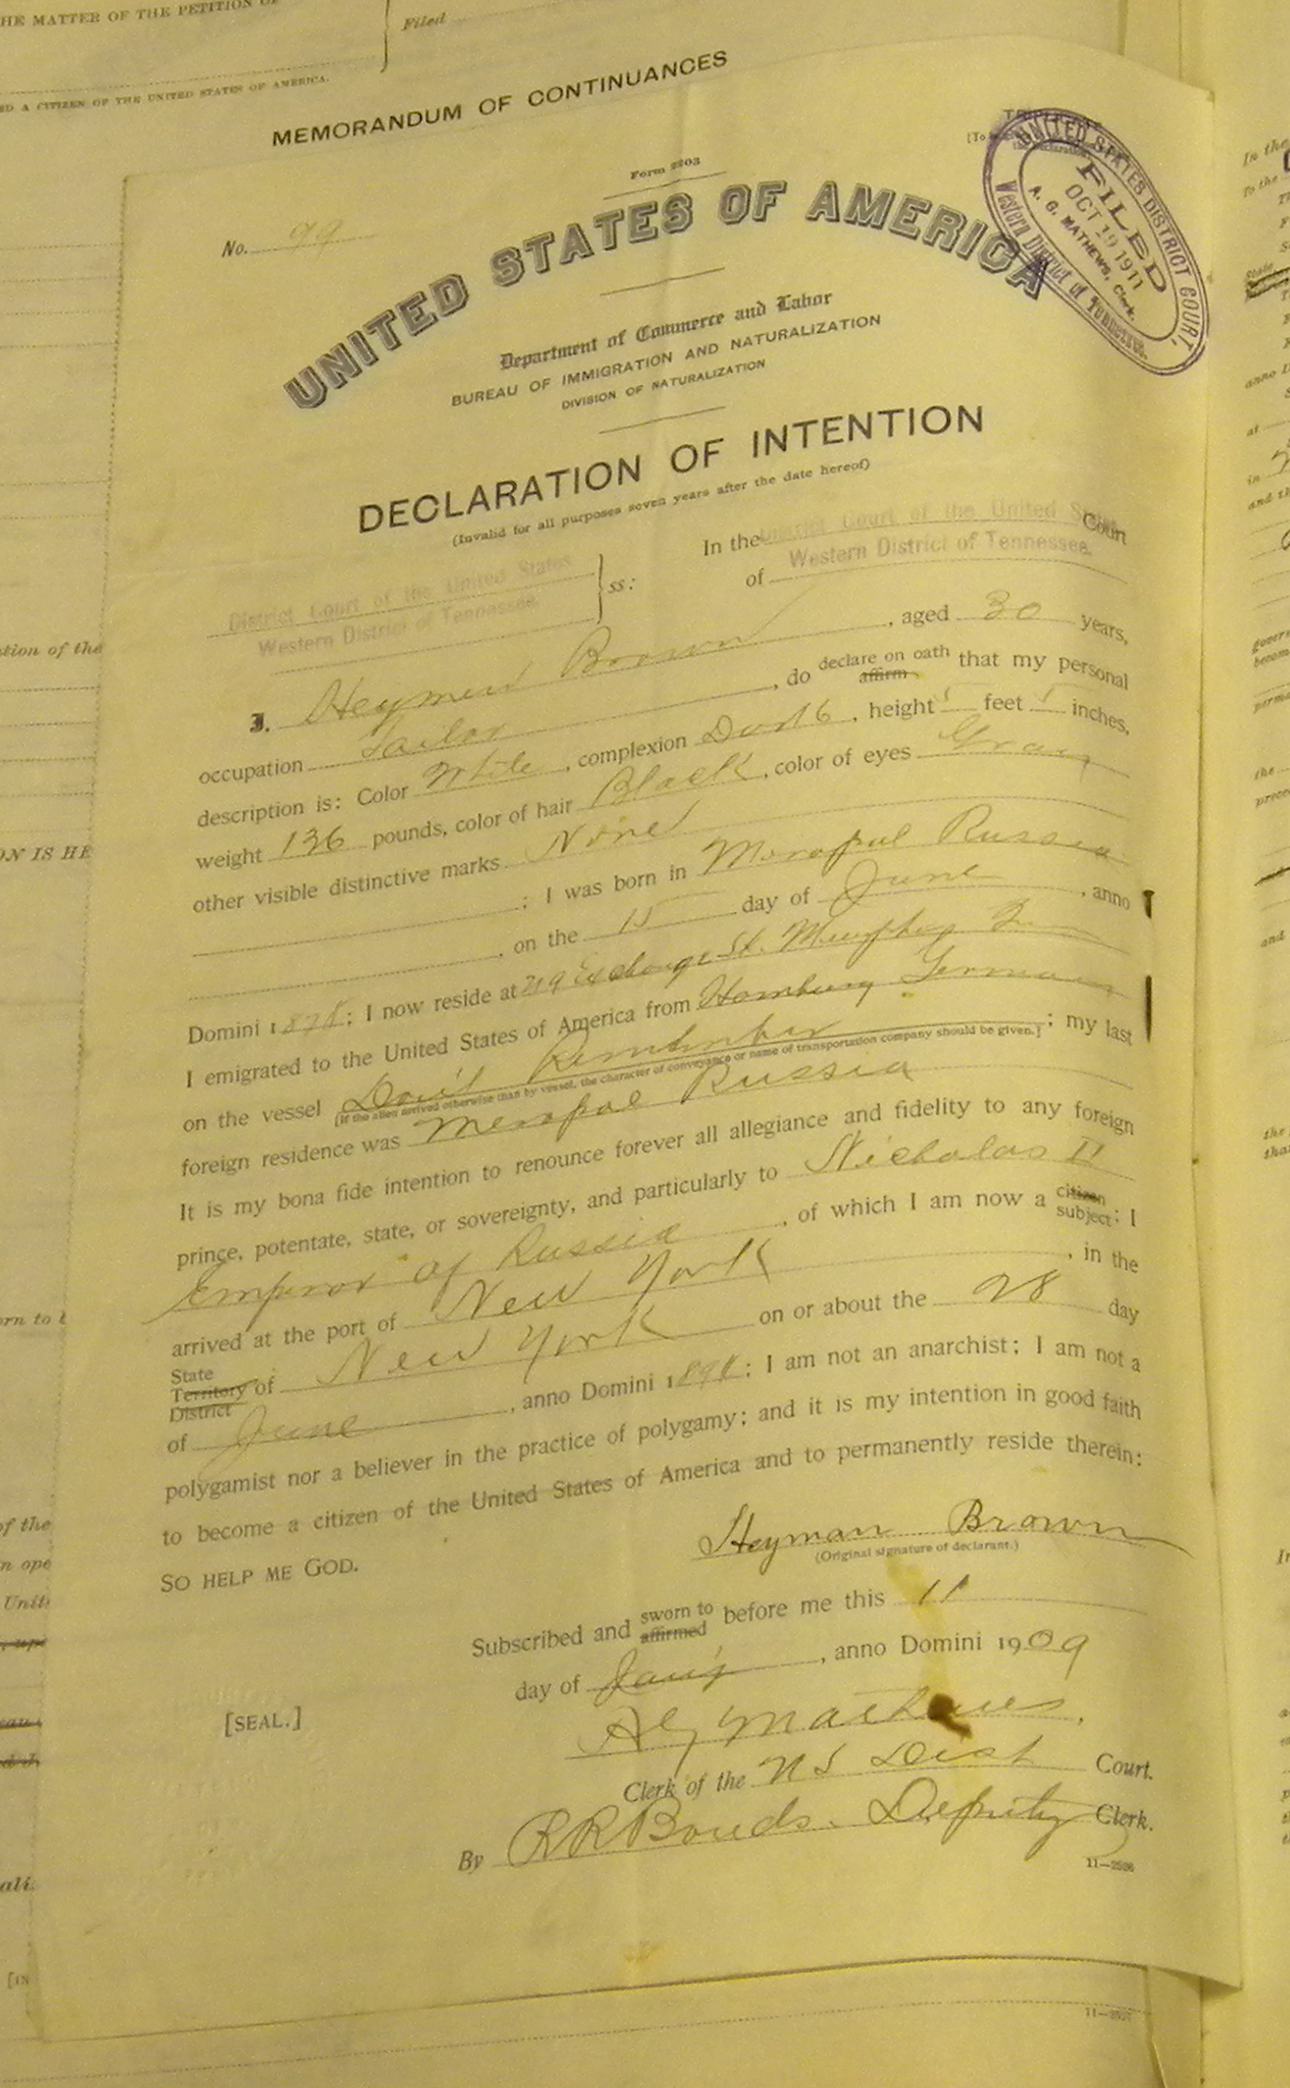 HE MATTER OF THE PETITION OF
Filed
ED A CITIZEN OF THE UNITED STATES OF AMERICA.
MEMORANDUM OF CONTINUANCES
Form 2203
No. 99
UNITED STATES DISTRICT COURT,
FILED
OCT 19 1911
A. G. MATHEWS, Clerk.
Western District of Tennessee.
UNITED STATES OF AMERICA
Department of Commerce and Labor
BUREAU OF IMMIGRATION AND NATURALIZATION
DIVISION OF NATURALIZATION
DECLARATION OF INTENTION
(Invalid for all purposes seven years after the date hereof)
In the District Court of the United States Court
of Western District of Tennessee.
District Court of the United States
Western District of Tennessee.
ss:
I, Heyman Brown, aged 30 years,
occupation Tailor, do declare on oath affirm that my personal
description is: Color White, complexion Dark, height 5 feet 1 inches,
weight 136 pounds, color of hair Black, color of eyes Gray
other visible distinctive marks None
; I was born in Meropol Russia
, on the 15 day of June, anno
Domini 1878; I now reside at 219 Exchange St. Memphis
I emigrated to the United States of America from Hamburg Germany
on the vessel Don't Remember; my last
[If the alien arrived otherwise than by vessel, the character of conveyance or name of transportation company should be given.]
foreign residence was Meropol Russia
It is my bona fide intention to renounce forever all allegiance and fidelity to any foreign
prince, potentate, state, or sovereignty, and particularly to Nicholas II
Emperor of Russia, of which I am now a citizen subject; I
arrived at the port of New York, in the
State Territory District of New York on or about the 28 day
of June, anno Domini 1898; I am not an anarchist; I am not a
polygamist nor a believer in the practice of polygamy; and it is my intention in good faith
to become a citizen of the United States of America and to permanently reside therein:
SO HELP ME GOD.
Heyman Brown
(Original signature of declarant.)
Subscribed and sworn to affirmed before me this 11
day of Jan'y, anno Domini 1909
[SEAL.]
A G Mathews,
Clerk of the U S Dist Court.
By R R Bonds. Deputy Clerk.
11—2596